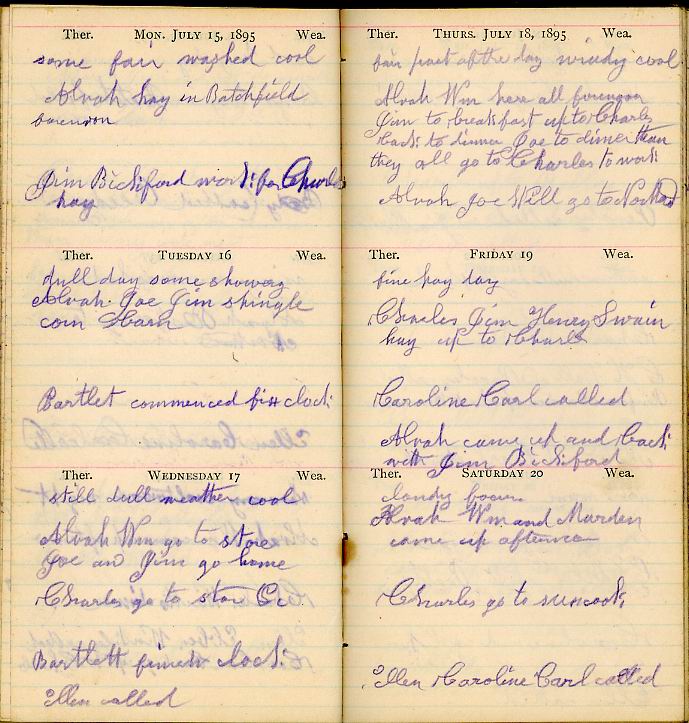 Ther. Mon. July 15, 1895 Wea.
some fair washed cool
Alvah hay in Batchfield
forenoon
Jim Bickford work for Charles
hay
Ther. Tuesday 16 Wea.
dull day some showers
Alvah. Joe Jim shingle
corn Barn
Bartlet commenced fix clock
Ther. Wednesday 17 Wea.
still dull weather cool
Alvah Wm go to store
Joe and Jim go home
Charles go to store
Bartlett finish clock
Ellen called
Ther. Thurs. July 18, 1895 Wea.
fair part of the day windy cool
Alvah Wm here all forenoon
Jim to breakfast up to Charles
back to dinner Joe to dinner then
they all go to Charles to work
Alvah Joe Will go to
Ther. Friday 19 Wea.
fine hay day
Charles Jim Henry Swain
hay up to Charls
Caroline Carl called
Alvah came up and back
with Jim Bickford
Ther. Saturday 20 Wea.
cloudy
Alvah Wm and Murden
came up afternoon
Charles go to suncook
Ellen Caroline Carl called